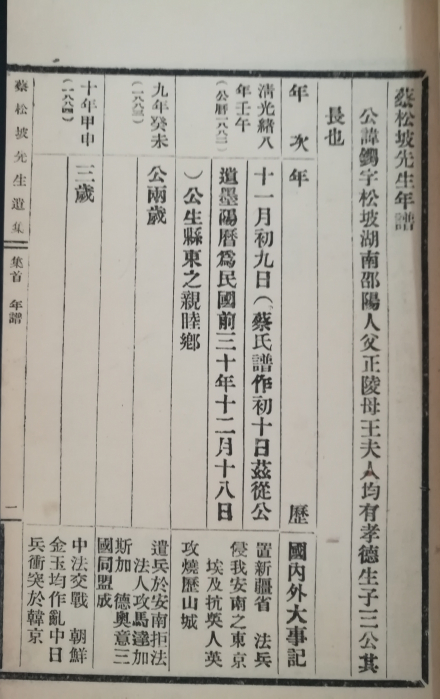 蔡松坡先生年譜
公諱鍔字松坡湖南邵陽人父正陵母王夫人均有孝德生子三公其
長也
年次
年歷
國內外大事記
清光緒八
年壬午
(公曆一八八二)
十一月初九日(蔡氏譜作初十日茲從公
遺墨陽曆爲民國前三十年十二月十八日
)公生縣東之親睦鄉
置新疆省 法兵
侵我安南之東京
埃及抗英人英
攻燒歷山城
九年癸未
(一八八三)
公兩歲
遣兵於安南拒法
法人攻馬達加
斯加 德奧意三
國同盟成
十年甲申
(一八八四)
三歲
中法交戰 朝鮮
金玉均作亂中日
兵衝突於韓京
蔡松坡先生遺集
集首 年譜
一